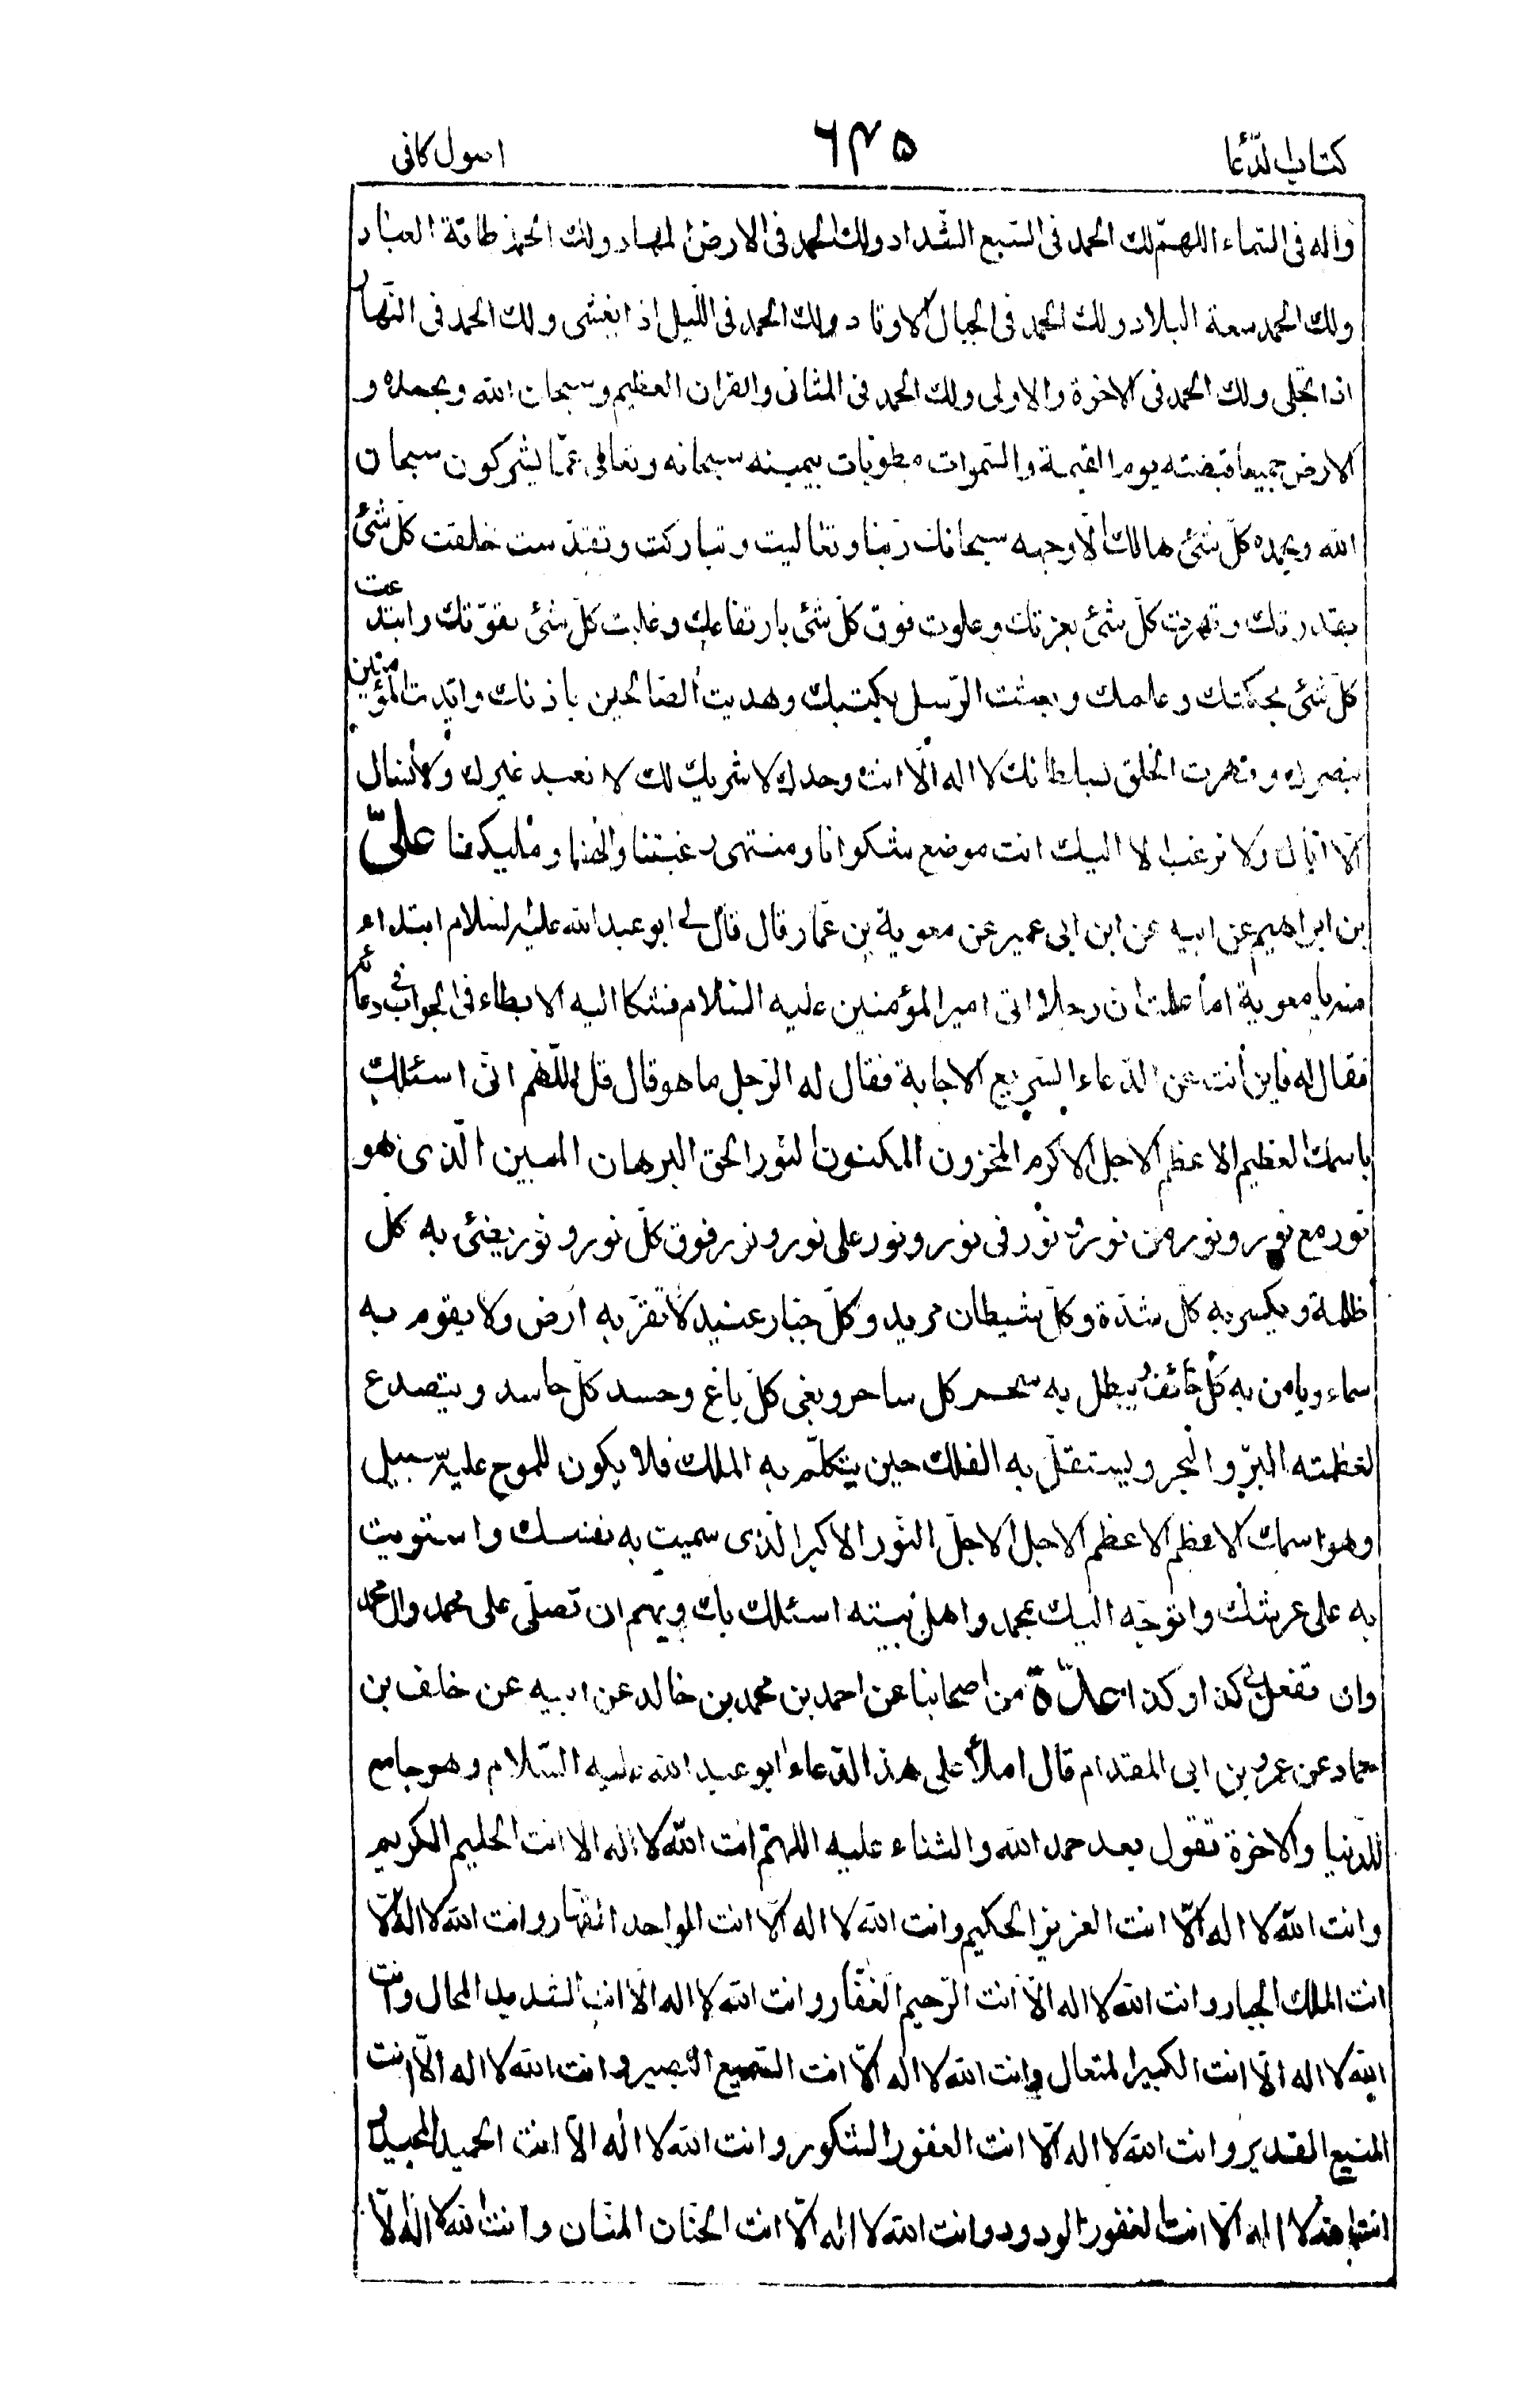 كتاب الدّعا
٦٣٥
اصول كافى
واله فى السّماء اللهمّ لك الحمد فى السّبع الشّداد ولك الحمد فى الارض المهاد ولك الحمد طاقة العباد
ولك الحمد سعة البلاد ولك الحمد فى الجبال الاوتاد ولك الحمد فى اللّيل اذا يغشى ولك الحمد فى النّهار
اذا تجلّى ولك الحمد فى الاخرة والاولى ولك الحمد فى المثانى والقران العظيم وسبحان الله وبحمده و
الارض جميعا قبضته يوم القيمة والسّموات مطويّات بيمينه سبحانه وتعالى عمّا يشركون سبحان
الله وبحمده كلّ شئ هالك الّا وجهه سبحانك ربّنا وتعاليت وتباركت وتقدّست خلقت كلّ شئ
بقدرتك وقهرت كلّ شئ بعزتك وعلوت فوق كلّ شئ بارتفاعك وغلبت كلّ شئ بقوّتك وابتدعت
كلّ شئ بحكمتك وعلمك وبعثت الرّسل بكتبك وهديت الصّالحين باذنك وايّدت المؤمنين
بنصرك وقهرت الخلق بسلطانك لا اله الّا انت وحدك لا شريك لك لا نعبد غيرك ولا نسال
الّا ايّاك ولا نرغب الا اليك انت موضع شكوانا ومنتهى رغبتنا والهنا ومليكنا علىّ
بن ابراهيم عن ابيه عن ابن ابى عمير عن معوية بن عمّار قال قال لى ابو عبد الله عليه السلام ابتداء
منه يا معوية اما علمت ان رجلا اتى امير المؤمنين عليه السّلام فشكا اليه الابطاء فى الجواب فى دعائه
فقال له فاين أنت عن الدّعاء السّريع الاجابة فقال له الرّجل ما هو قال قل اللّهم انّى اسئلك
باسمك العظيم الاعظم الاجلّ الاكرم المخزون المكنون النّور الحق البرهان المبين الّذى هو
نور مع نور ونور من نور ونور فى نور ونور على نور ونور فوق كلّ نور ونور يضئ به كلّ
ظلمة ويكسر به كلّ شدّة وكلّ شيطان مريد وكلّ جبّار عنيد لا تقرّ به ارض ولا يقوم به
سماء ويامن به كلّ خائف ويبطل به سحر كل ساحر وبغى كلّ باغ وحسد كلّ حاسد ويتصدع
لعظمته البرّ والبحر ويستقلّ به الفلك حين يتكلّم به الملك فلا يكون للموج عليه سبيل
وهو اسمك الاعظم الاعظم الاجل الاجلّ النّور الاكبر الّذى سميت به نفسك واستويت
به على عرشك واتوجّه اليك بمحمد واهل بيته اسئلك بك وبهم ان تصلّى على محمد وال محمد
وان تفعل بى كذا وكذا عدّة من اصحابنا عن احمد بن محمد بن خالد عن ابيه عن خلف بن
حماد عن عمرو بن ابى المقدام قال املأ على هذا الدّعاء ابو عبد الله عليه السّلام وهو جامع
للدّنيا والاخرة تقول بعد حمد الله والثناء عليه اللهمّ انت الله لا اله الا انت الحليم الكريم
وانت الله لا اله الّا انت العزيز الحكيم وانت الله لا اله الّا انت الواحد القهّار وانت الله لا اله الّا
انت الملك الجبار وانت الله لا اله الّا انت الرّحيم الغفّار وانت الله لا اله الّا انت الشديد المحال وانت
الله لا اله الّا انت الكبير المتعال وانت الله لا اله الّا انت السّميع البصير وانت الله لا اله الّا انت
المنيع القدير وانت الله لا اله الّا انت الغفور الشكور وانت الله لا اله الّا انت الحميد المجيد و
انت الله لا اله الّا انت الغفور الودود وانت الله لا اله الّا انت الحنّان المنّان وانت الله لا اله الّا